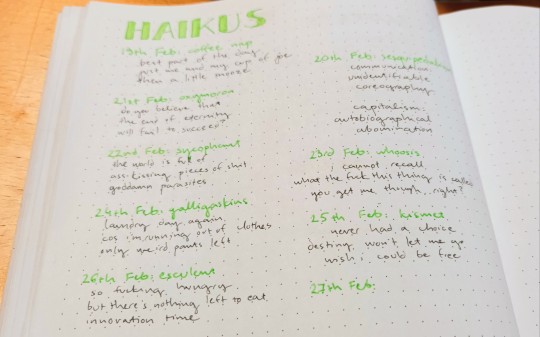 HAIKUS
19th Feb: coffee nap
best part of the day
just me and my cup of joe
then a little snooze
21st Feb: oxymoron
do you believe that
the end of eternity
will fail to succeed?
22nd Feb: sycophant
the world is full of
ass-kissing pieces of shit
goddamn parasites
24th Feb: galligaskins
laundry day again
cos i'm running out of clothes
only weird pants left
26th Feb: esculent
so fucking hungry
but there's nothing left to eat
innovation time
20th Feb: sesquipedalian
communication
unidentifiable
coreography
capitalism:
autobiographical
abomination
23rd Feb: whoosis
cannot recall
what the fuck this thing is called
you get me though, right?
25th Feb: kismet
never had a choice
destiny won't let me go
wish i could be free
27th Feb: